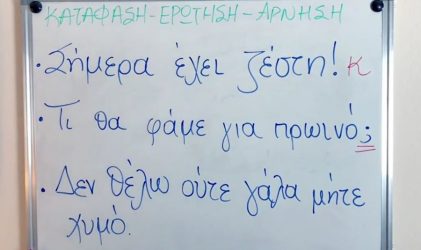 ΚΑΤΑΦΑΣΗ-ΕΡΩΤΗΣΗ-ΑΡΝΗΣΗ
• Σήμερα έχει ζέστη! κ
• Τι θα φάμε για πρωινό;
• Δεν θέλω ούτε γάλα μήτε
χυμό.